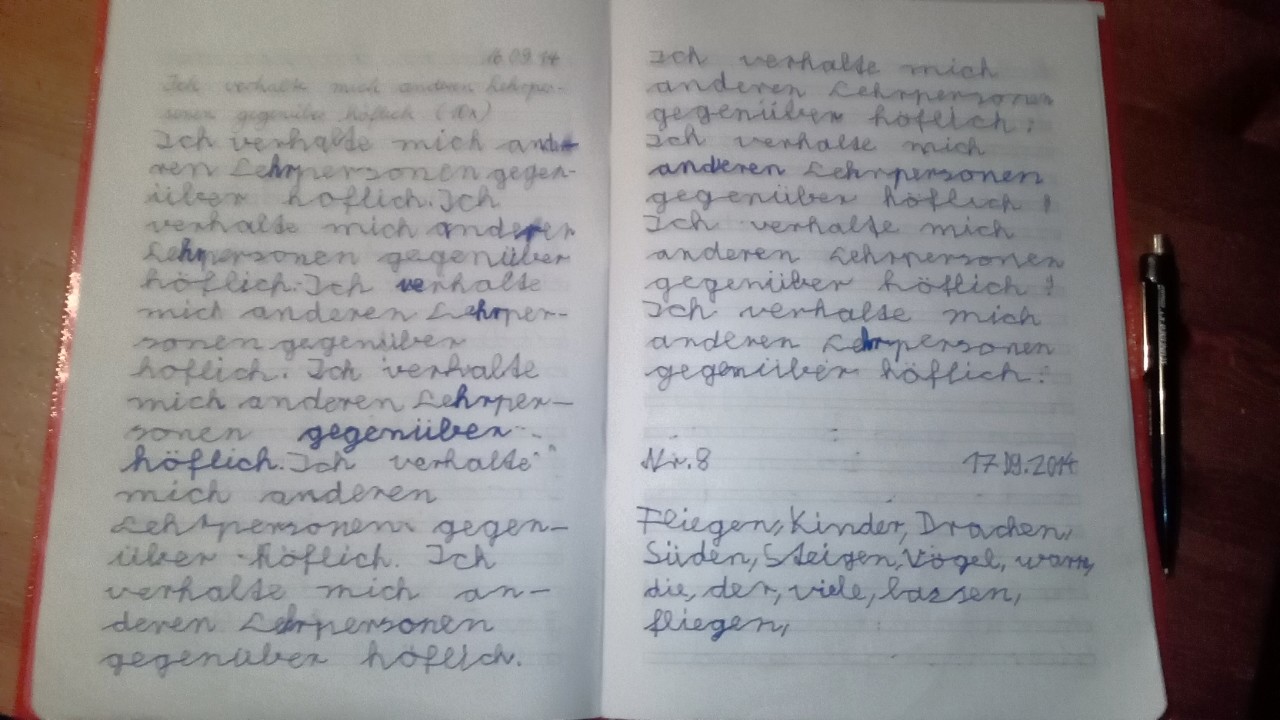 16.09.14
Ich verhalte mich anderen Lehrper-
sonen gegenüber höflich (10x)
Ich verhalte mich ande
ren Lehrpersonen gegen-
über höflich. Ich
verhalte mich anderen
Lehrpersonen gegenüber
höflich. Ich verhalte
mich anderen Lehrper-
sonen gegenüber
höflich. Ich verhalte
mich anderen Lehrper-
sonen gegenüber
höflich. Ich verhalte
mich anderen
Lehrpersonen gegen-
über höflich. Ich
verhalte mich an-
deren Lehrpersonen
gegenüber höflich.
Ich verhalte mich
anderen Lehrpersonen
gegenüber höflich!
Ich verhalte mich
anderen Lehrpersonen
gegenüber höflich!
Ich verhalte mich
anderen Lehrpersonen
gegenüber höflich!
Ich verhalte mich
anderen Lehrpersonen
gegenüber höflich!
Nr. 8 17.09.2014
Fliegen, Kinder, Drachen,
Süden, Steigen, Vögel, warm,
die, der, viele, lassen,
fliegen,